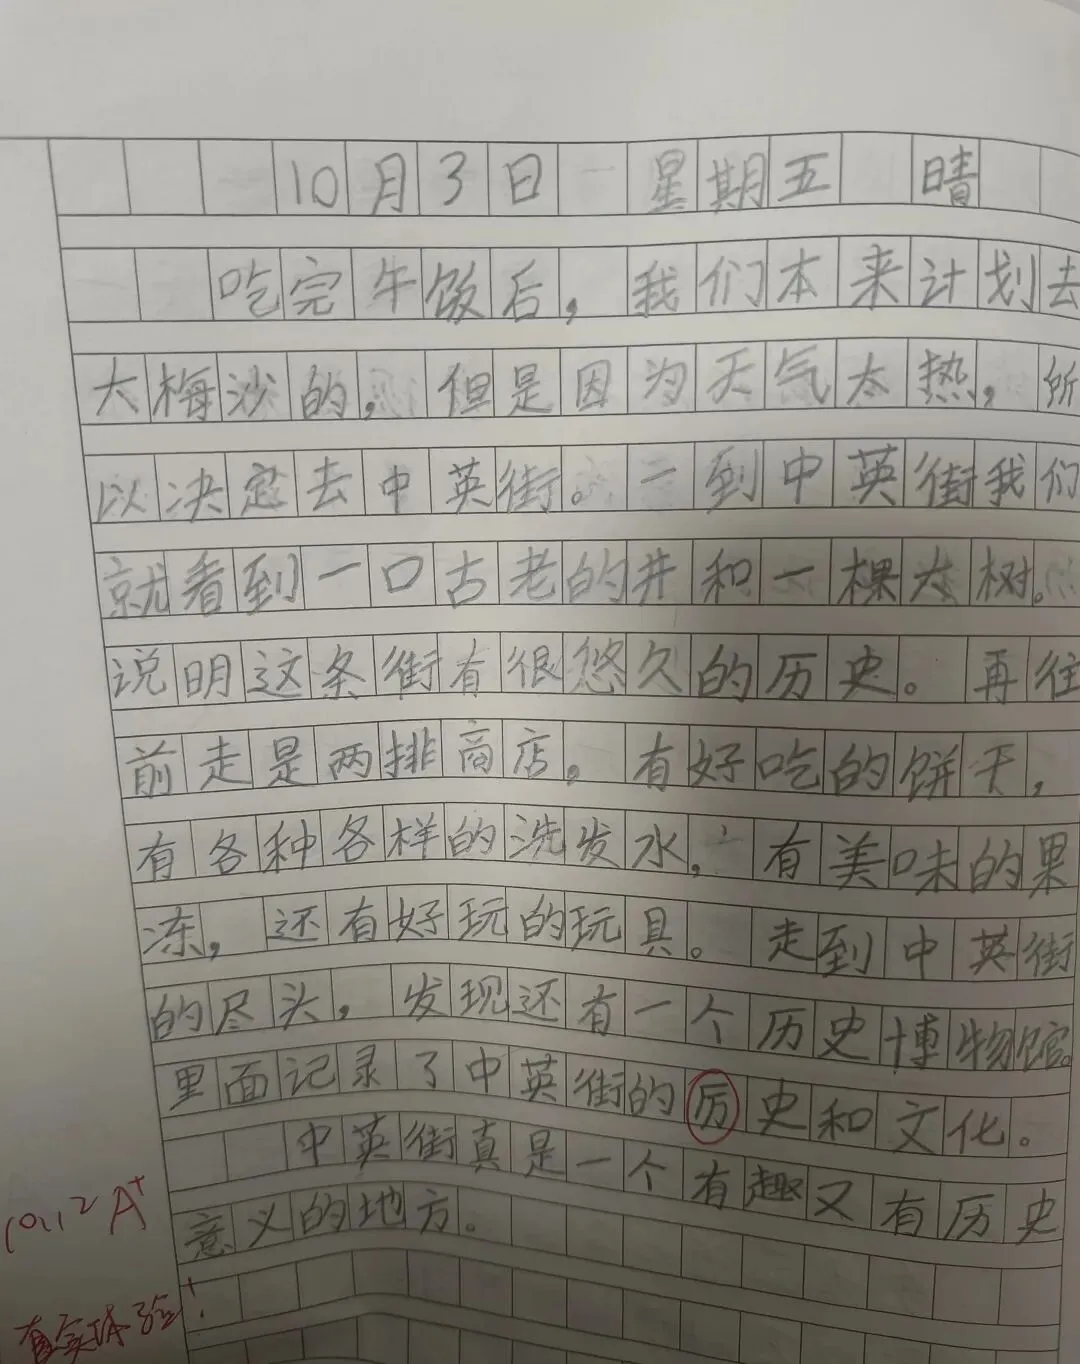 10月3日 星期五 晴
吃完午饭后，我们本来计划去
大梅沙的，但是因为天气太热，所
以决定去中英街。一到中英街我们
就看到一口古老的井和一棵大树。
说明这条街有很悠久的历史。再往
前走是两排商店。有好吃的饼干，
有各种各样的洗发水，有美味的果
冻，还有好玩的玩具。走到中英街
的尽头，发现还有一个历史博物馆。
里面记录了中英街的厉史和文化。
中英街真是一个有趣又有历史
意义的地方。
10.12 A+
有实体验！